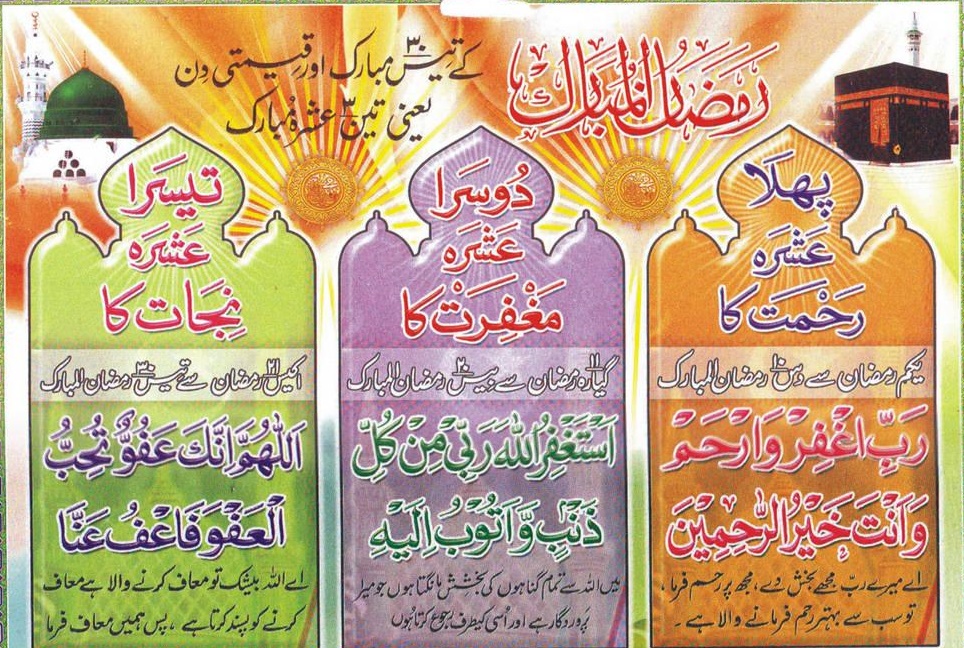 رمضان المبارک
کے تیس ۳۰ مبارک اور قیمتی دن
یعنی تین ۳ عشرہ مُبارک
پھلَا
عَشرَہ
رَحْمَت کَا
یکم رمضان سے دس ۱۰ رمضان المبارک
رَبِّ اغْفِرْ وَارْحَمْ
وَاَنْتَ خَیْرُ الرّٰحِمِیْنَ
اے میرے ربّ مجھے بخش دے، مجھ پر رحم فرما،
تو سب سے بہتر رحم فرمانے والا ہے۔
دُوسرَا
عَشرَہ
مَغْفِرَتْ کَا
گیارہ ۱۱ رمضان سے بیس ۲۰ رمضان المبارک
اَسْتَغْفِرُ اللہَ رَبِّیْ مِنْ کُلِّ
ذَنْبٍ وَّاَتُوْبُ اِلَیْہِ
میں اللہ سے تمام گناہوں کی بخشش مانگتا ہوں جو میرا
پروردگار ہے اور اُسی کیطرف رجوع کرتا ہُوں
تیسرَا
عَشرَہ
نِجَات کَا
اکیس ۲۱ رمضان سے تیس ۳۰ رمضان المبارک
اَللّٰھُمَّ اِنَّکَ عَفُوٌّ تُحِبُّ
الْعَفْوَ فَاعْفُ عَنَّا
اے اللہ بیشک تو معاف کرنے والا ہے معاف
کرنے کو پسند کرتا ہے، پس ہمیں معاف فرما